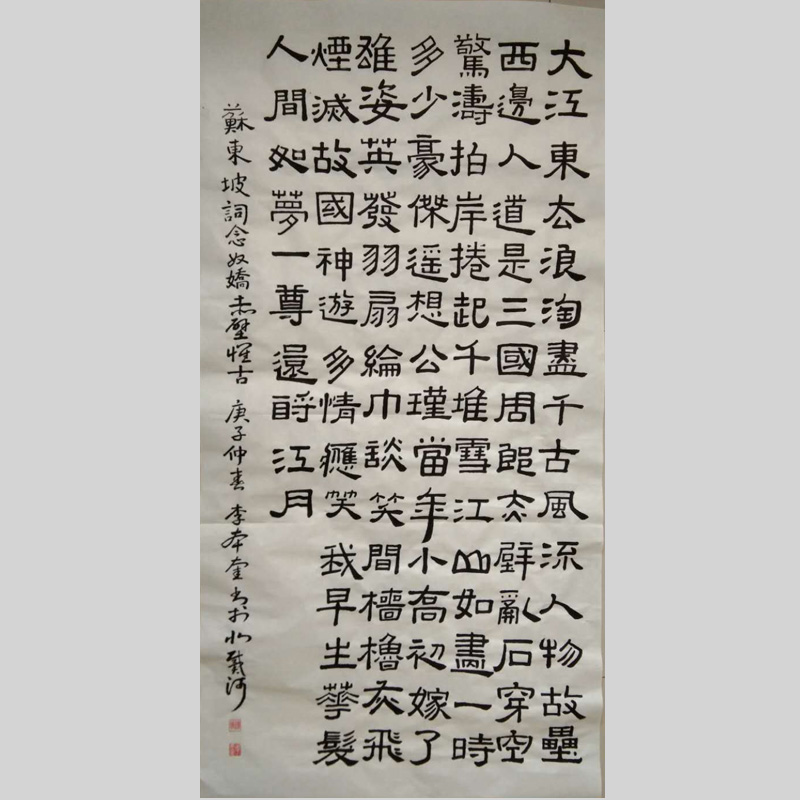 大江東去浪淘盡千古風流人物故壘
西邊人道是三國周郎赤壁亂石穿空
驚濤拍岸捲起千堆雪江山如畫一時
多少豪傑遥想公瑾當年小喬初嫁了
雄姿英發羽扇綸巾談笑間檣櫓灰飛
煙滅故國神遊多情應笑我早生華髮
人間如夢一尊還酹江月
蘇東坡詞念奴嬌赤壁懷古 庚子仲春 李本奎書於北戴河